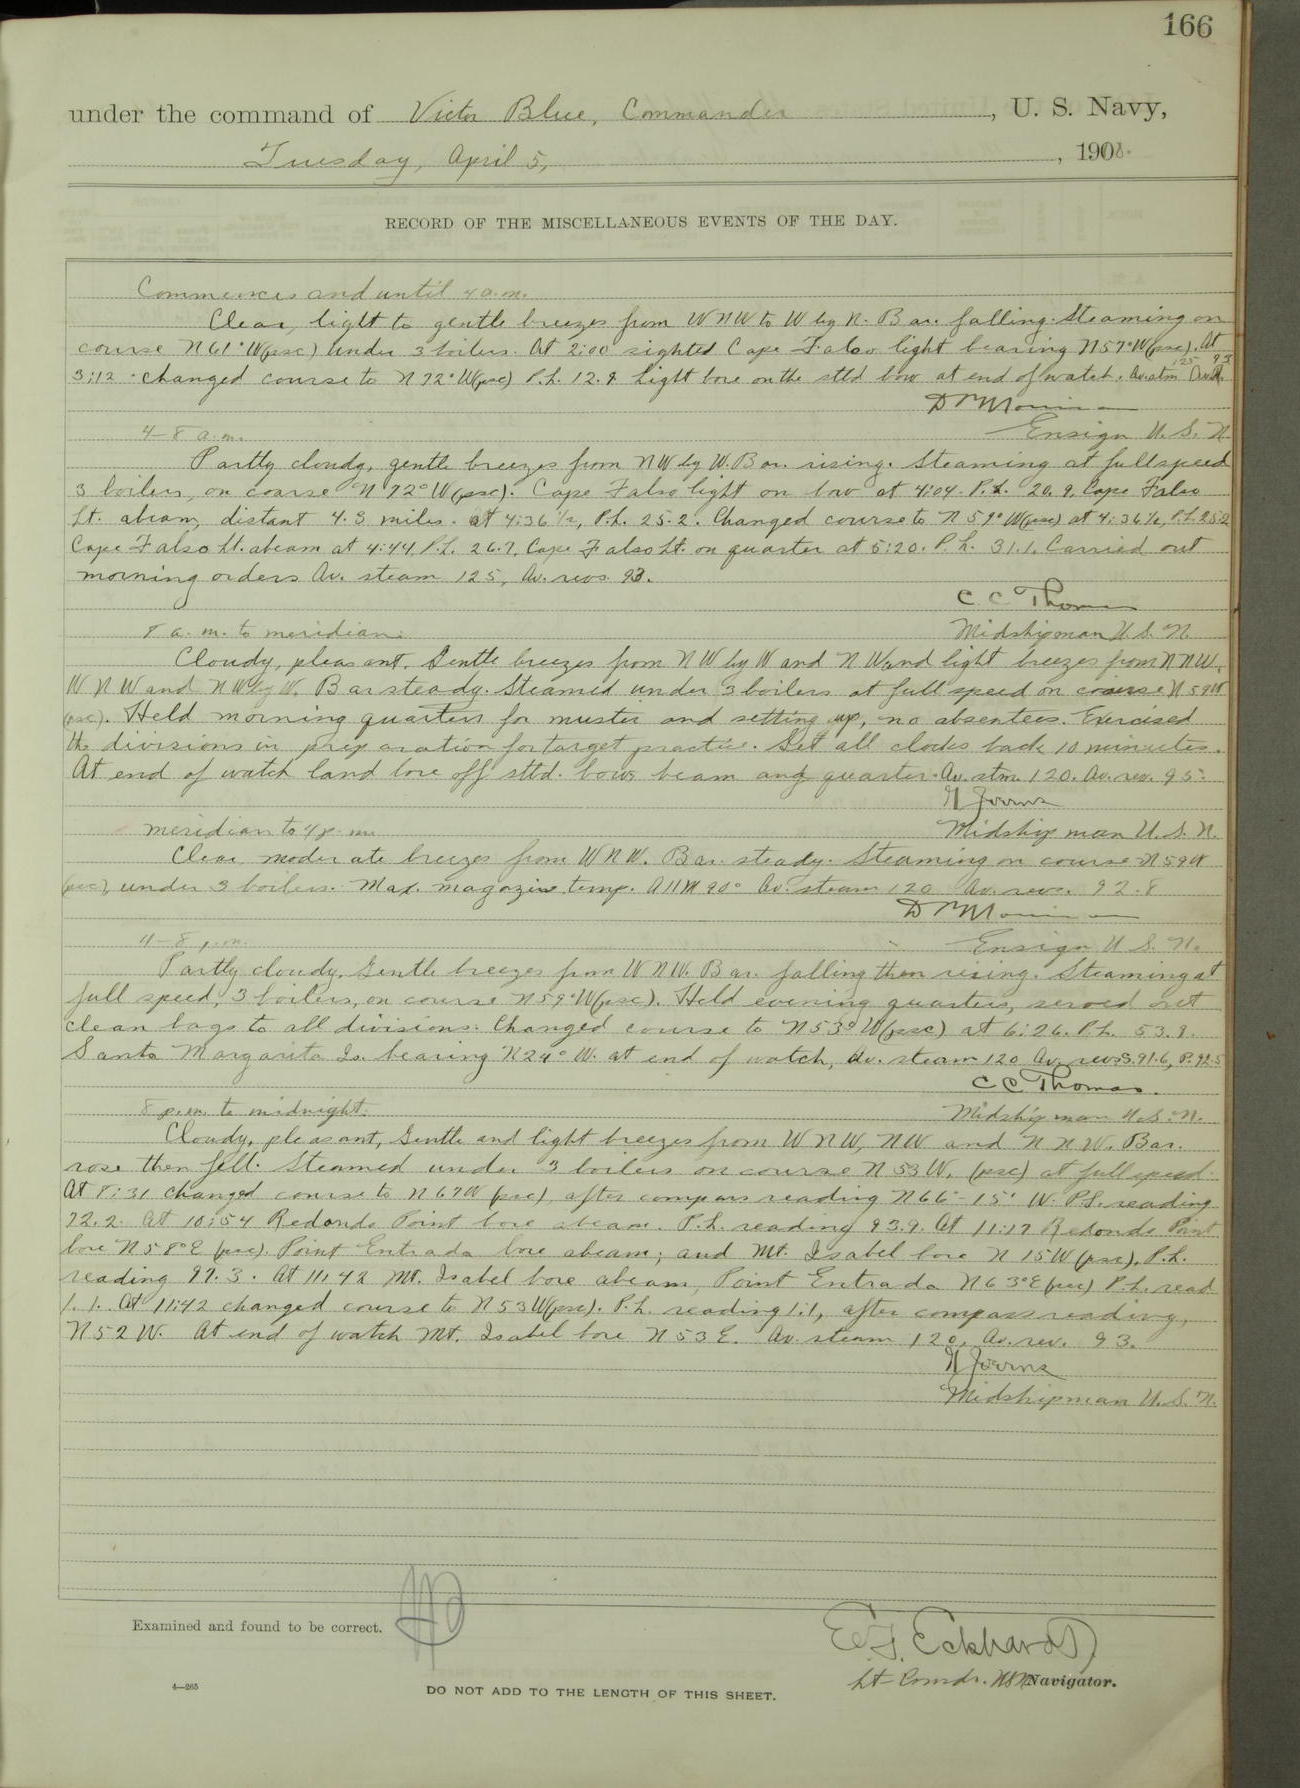 166
under the command of Victor Blue, Commander, U. S. Navy,
Tuesday, April 5, 190
RECORD OF THE MISCELLANEOUS EVENTS OF THE DAY.
Commences and until 4 a.m.
Clear, light to gentle breezes from WNW to W by N. Bar. falling. Steaming on
course N61°W(psc) under 3 boilers. At 2:00 sighted Cape Falso light bearing N57°W(psc). At
3:12 changed course to N72°W(psc) P.L. 12.9. Light bore on the stbd bow at end of watch. Av. stm 125
Ensign U.S.N.
4-8 a.m.
Partly cloudy, gentle breezes from NW by W. Bar. rising. Steaming at full speed
3 boilers, on coarse N72°W(psc). Cape Falso light on bow at 4:04. P.L. 20.9. Cape Falso
Lt. abeam, distant 4.3 miles. at 4:36 1/2, P.L. 25.2. Changed course to N59°W(psc) at 4:36 1/2, P.L. 25.2
Cape Falso Lt. abeam at 4:44. P.L. 26.7, Cape Falso Lt. on quarter at 5:20. P.L. 31.1. Carried out
morning orders Av. steam 125, Av. revs. 93.
C C Thomas
8 a.m. to meridian.
Midshipman U.S.N.
Cloudy, pleasant. Gentle breezes from NW by W and NW and light breezes from NNW,
WNW and NW by W. Bar steady. Steamed under 3 boilers at full speed on course N59W
(psc). Held morning quarters for muster and setting up, no absentees. Exercised
the divisions in preparation for target practice. Set all clocks back 10 minutes.
At end of watch land bore off stbd. bow, beam and quarter. Av. stm. 120. Av. rev. 95.
meridian to 4 p.m.
Midshipman U.S.N.
Clear, moderate breezes from WNW. Bar. steady. Steaming on course N59W
(psc), under 3 boilers. Max. magazine temp. 90° Av. steam 120 Av. revs. 92.8
4-8 p.m.
Ensign U.S.N.
Partly cloudy. Gentle breezes from WNW. Bar. falling then rising. Steaming at
full speed, 3 boilers, on course N59°W(psc). Held evening quarters, served out
clean bags to all divisions. Changed course to N53°W(psc) at 6:26. P.L. 53.9.
Santa Margarita Is. bearing N24°W. at end of watch, Av. steam 120 Av. revs S. 91.6, P. 92.5
C C Thomas.
8 p.m. to midnight.
Midshipman U.S.N.
Cloudy, pleasant, Gentle and light breezes from WNW, NW and NNW. Bar.
rose then fell. Steamed under 3 boilers on course N53W, (psc) at full speed.
At 8:31 changed course to N67W (psc), after compass reading N66°-15' W. P.L. reading
72.2. At 10:54 Redondo Point bore abeam. P.L. reading 93.9. At 11:17 Redondo Point
bore N58°E (psc). Point Entrada bore abeam; and Mt. Isabel bore N15W (psc), P.L.
reading 97.3. At 11:42 Mt. Isabel bore abeam, Point Entrada N63°E(psc) P.L. read
1.1. At 11:42 changed course to N53W(psc). P.L. reading 1.1, after compass reading,
N52W. At end of watch Mt. Isabel bore N53E. Av. steam 120, Av. rev. 93.
Midshipman U.S.N.
Examined and found to be correct.
E. F. Eckhardt
Lt-Comdr. USN Navigator.
4—265
DO NOT ADD TO THE LENGTH OF THIS SHEET.